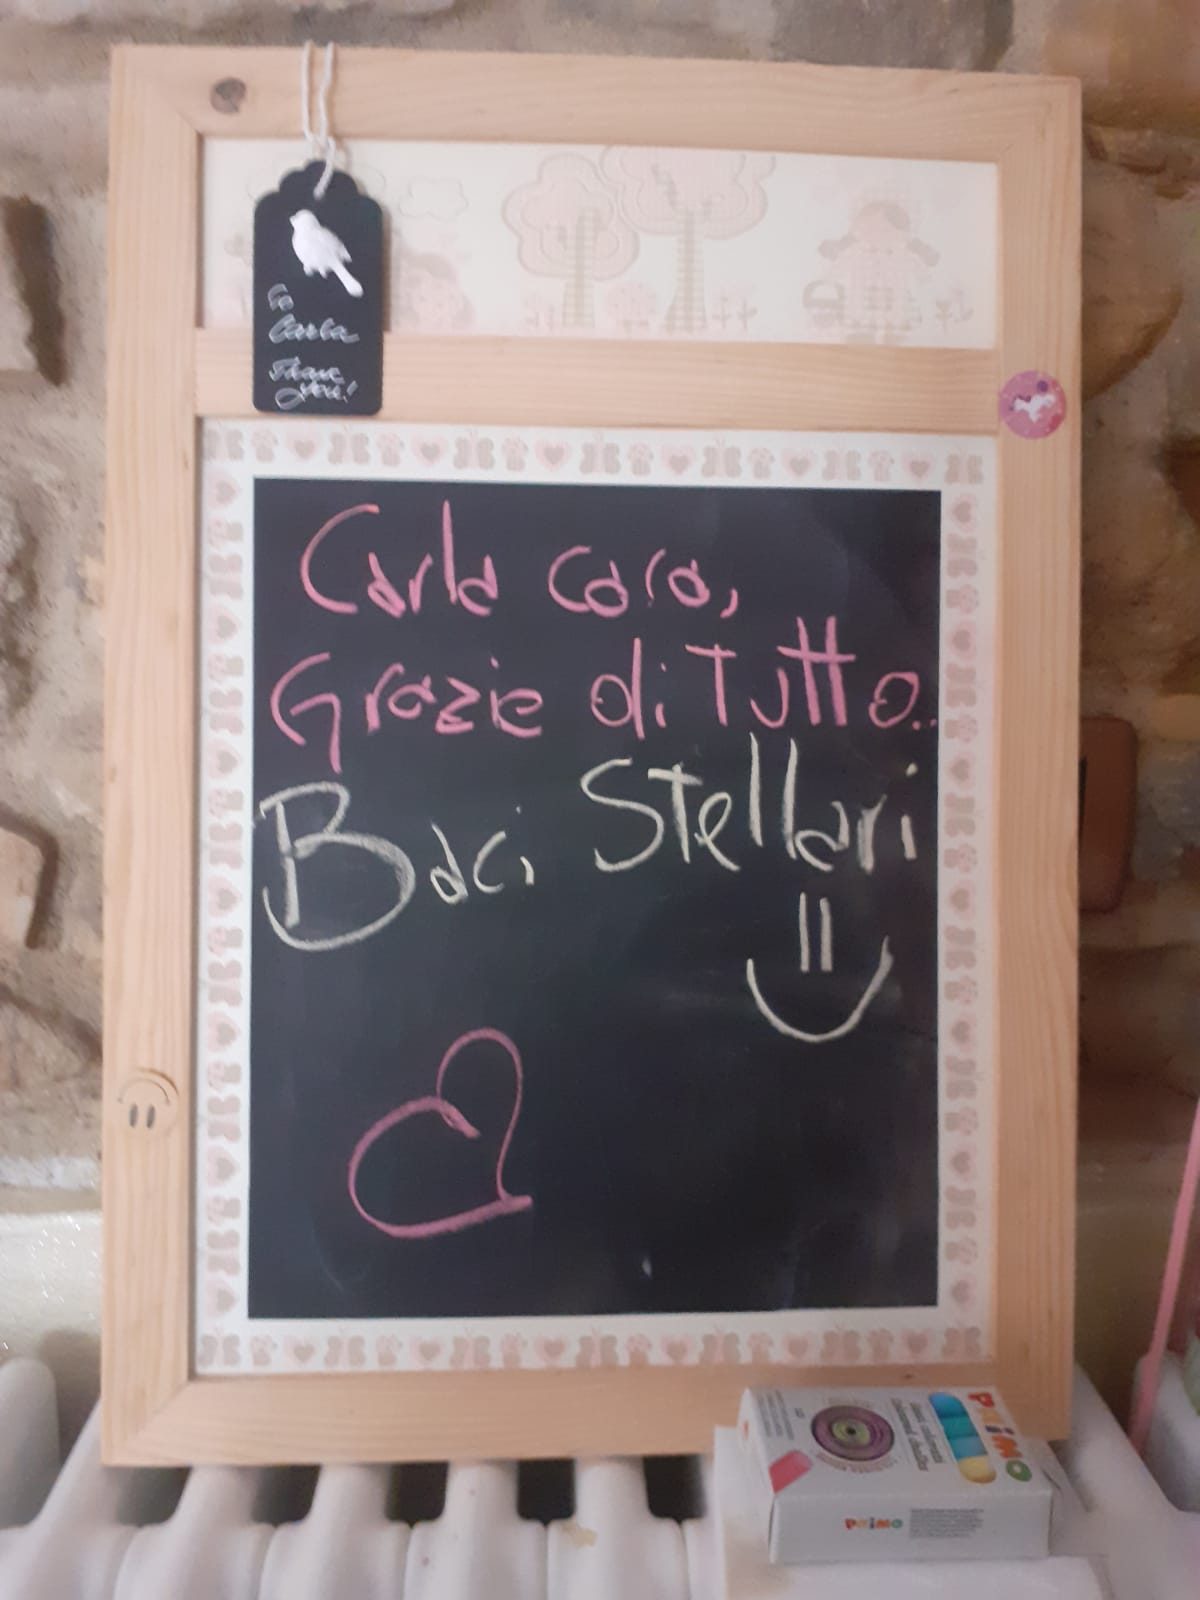 to
Carla
Thank
you!
Carla cara,
Grazie di Tutto..
Baci Stellari
PRIMO
PRIMO